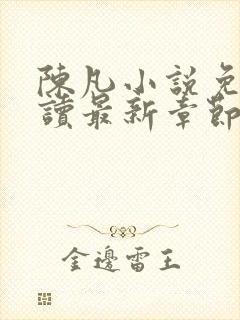 陳凡小說免
讀最新章節
金邊雷王